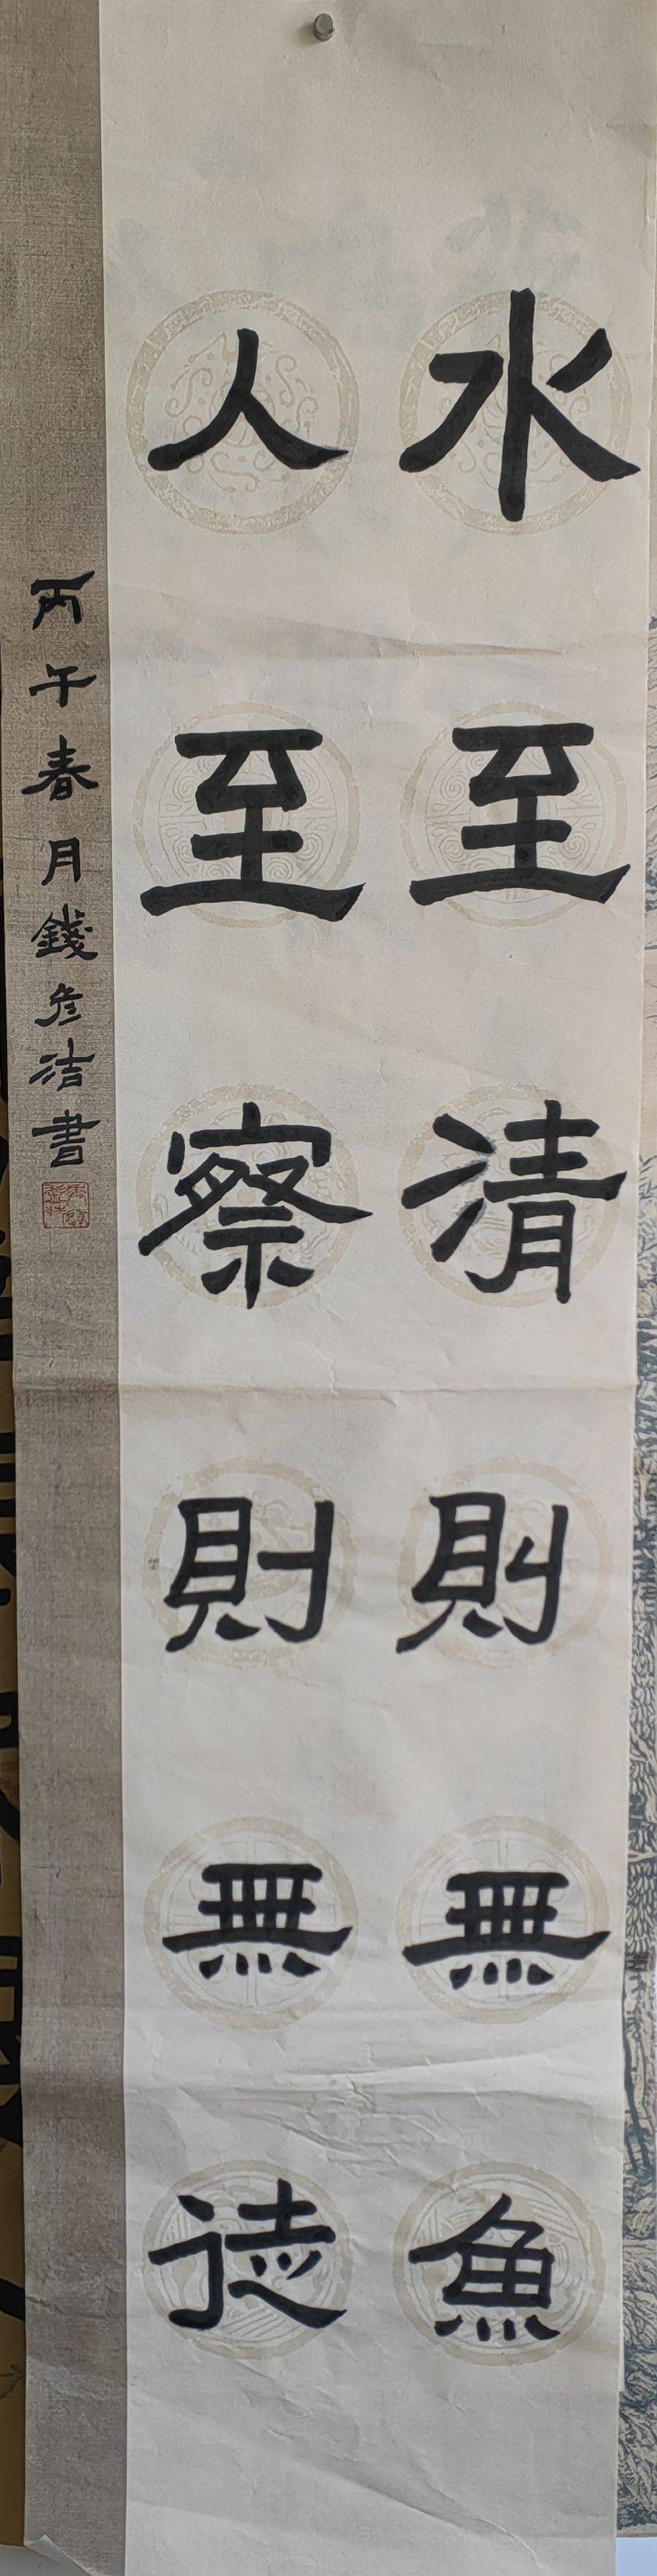 水至清則無魚
人至察則無徒
丙午春月錢彦洁書